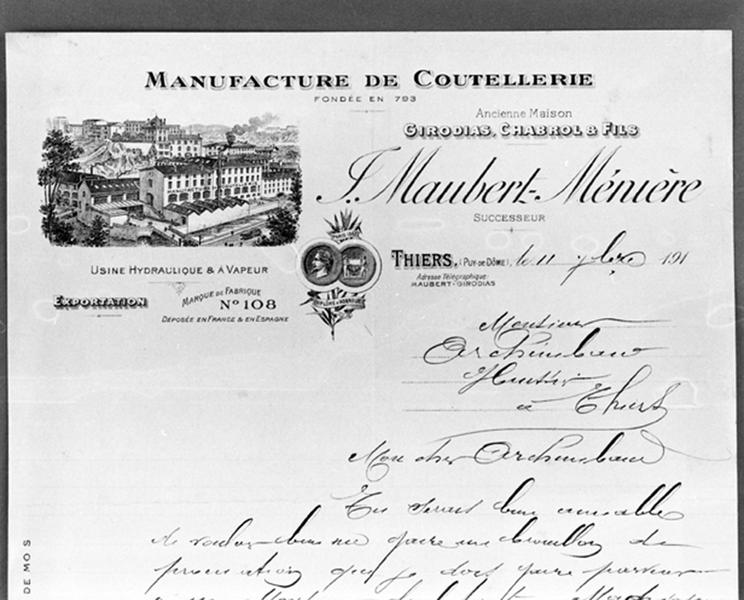 MANUFACTURE DE COUTELLERIE
FONDÉE EN 793
Ancienne Maison
GIRODIAS, CHABROL & FILS
J. Maubert-Ménière
SUCCESSEUR
THIERS, (PUY-DE-DÔME), le 11 191
Adresse Télégraphique:
MAUBERT-GIRODIAS
USINE HYDRAULIQUE & À VAPEUR
EXPORTATION
MARQUE DE FABRIQUE
N° 108
DÉPOSÉE EN FRANCE & EN ESPAGNE
Monsieur
Archimbaud
Huissier
à Thiers
Mon cher Archimbaud
Tu serais bien aimable
de vouloir bien me faire un brouillon de
procuration que je dois faire
DE MOS